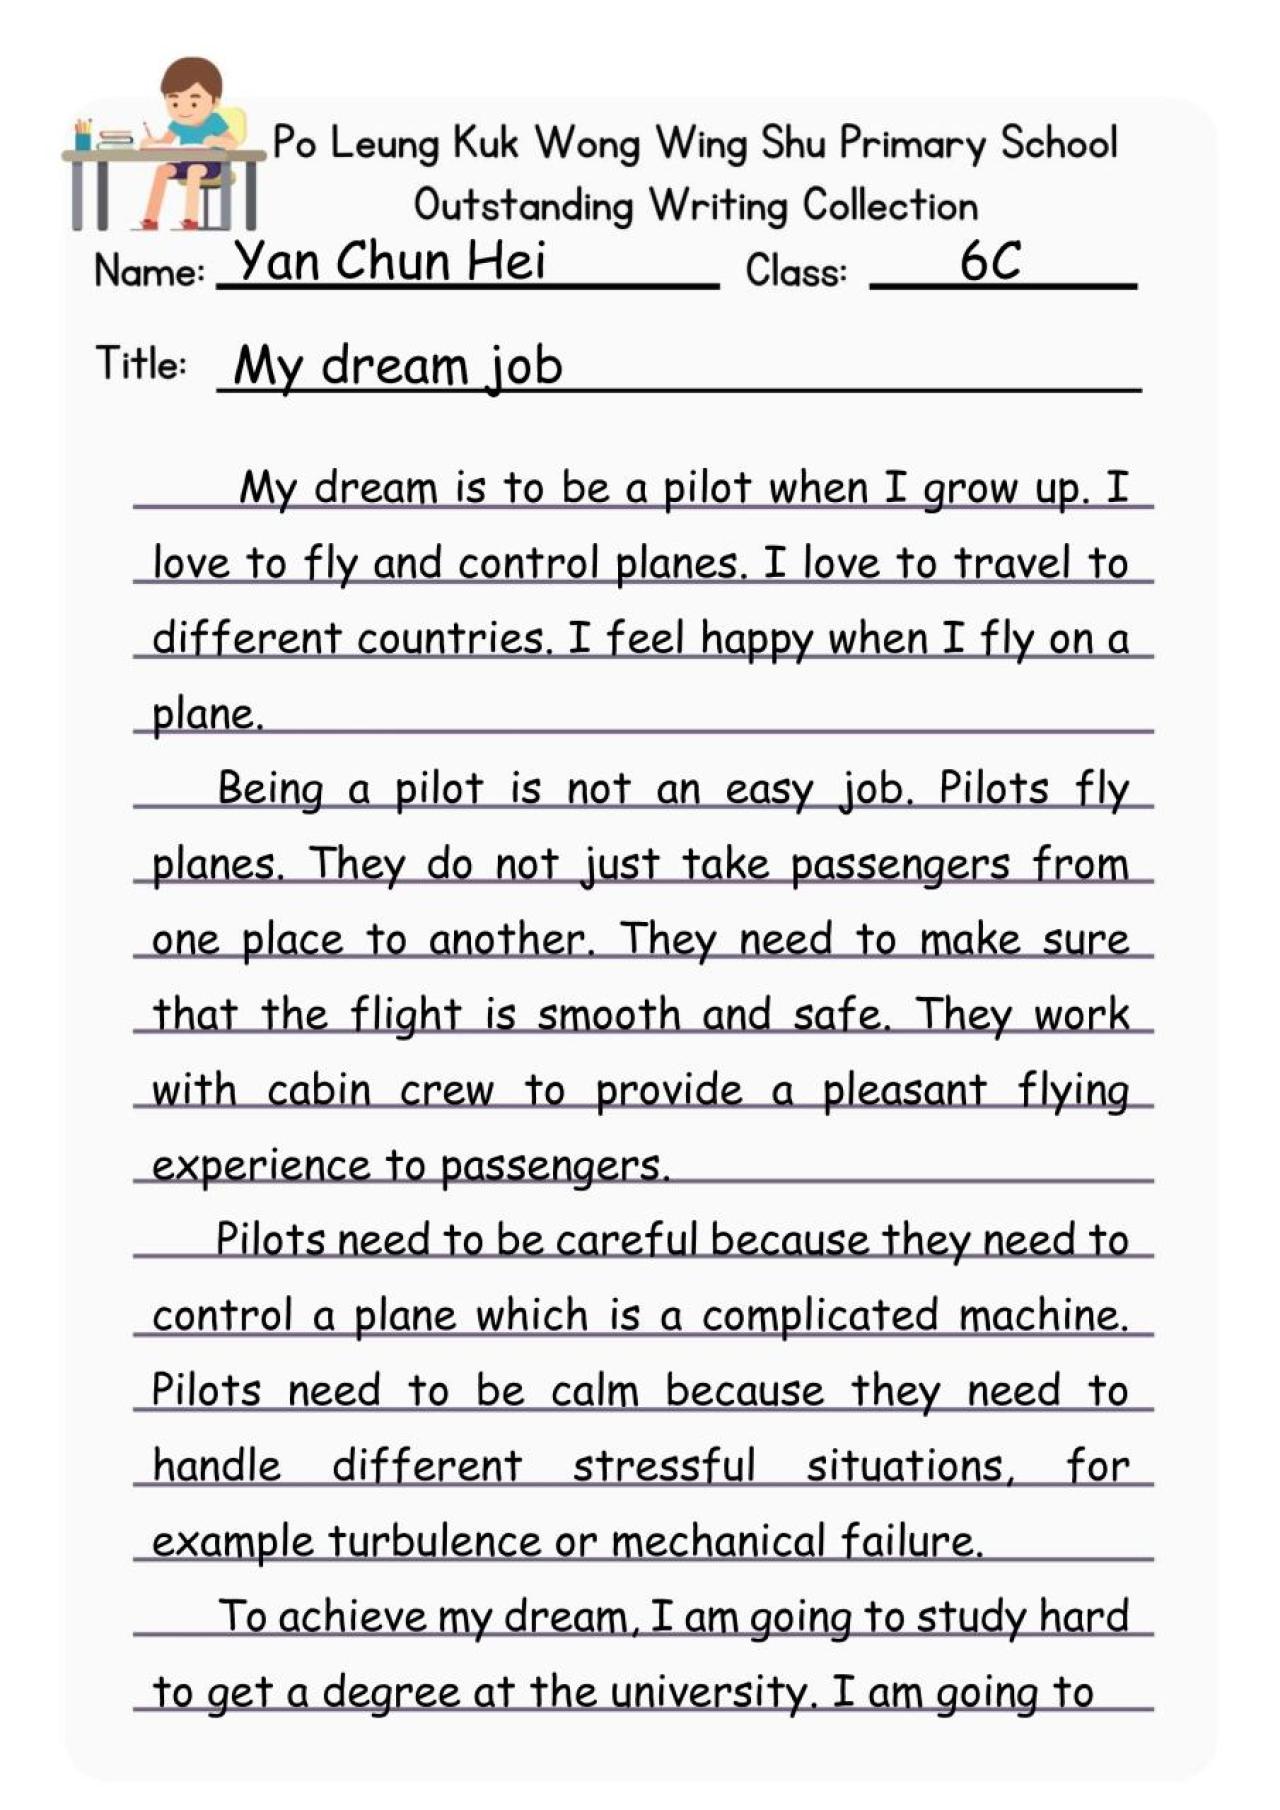 Po Leung Kuk Wong Wing Shu Primary School
Outstanding Writing Collection
Name: Yan Chun Hei Class: 6C
Title: My dream job
My dream is to be a pilot when I grow up. I
love to fly and control planes. I love to travel to
different countries. I feel happy when I fly on a
plane.
Being a pilot is not an easy job. Pilots fly
planes. They do not just take passengers from
one place to another. They need to make sure
that the flight is smooth and safe. They work
with cabin crew to provide a pleasant flying
experience to passengers.
Pilots need to be careful because they need to
control a plane which is a complicated machine.
Pilots need to be calm because they need to
handle different stressful situations, for
example turbulence or mechanical failure.
To achieve my dream, I am going to study hard
to get a degree at the university. I am going to